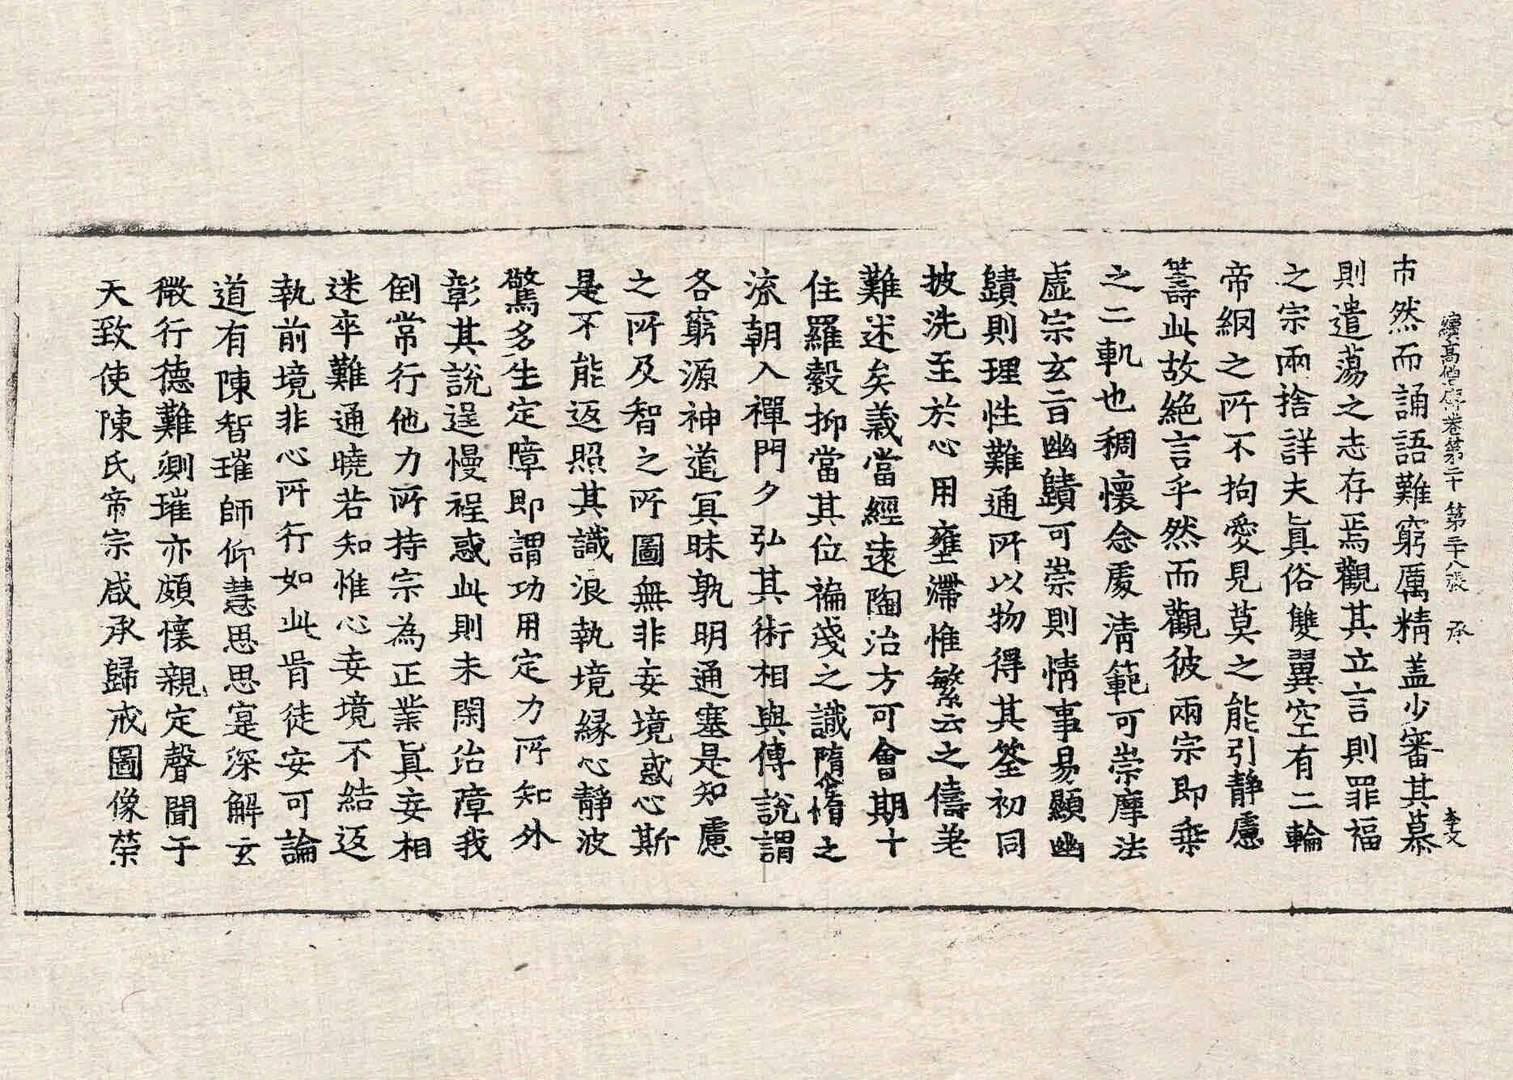 續高僧傳卷第二十 第三十八張 承 李文
市然而誦語難窮厲精盖少審其慕
則遣蕩之志存焉觀其立言則罪福
之宗兩捨詳夫真俗雙翼空有二輪
帝網之所不拘愛見莫之能引靜慮
籌此故絕言乎然而觀彼兩宗即乗
之二軌也稠懷念處清範可崇摩法
虛宗玄旨幽賾可崇則情事易顯幽
賾則理性難通所以物得其筌初同
披洗至於心用壅滯惟繁云之儔差
難述矣義當經遠陶治方可會期十
住羅縠抑當其位褊淺之識隳惰之
流朝入禪門夕弘其術相與傳說謂
各窮源神道冥昧孰明通塞是知慮
之所及智之所圖無非妄境惑心斯
是不能返照其識浪執境緣心靜波
驚多生定障即謂功用定力所知外
彰其說逞慢程惑此則未閑治障我
倒常行他力所持宗為正業真妄相
迷卒難通曉若知惟心妄境不結返
執前境非心所行如此胥徒安可論
道有陳智璀師仰慧思思寔深解玄
微行德難測璀亦頗懷親定聲聞于
天致使陳氏帝宗咸承歸戒圖像榮